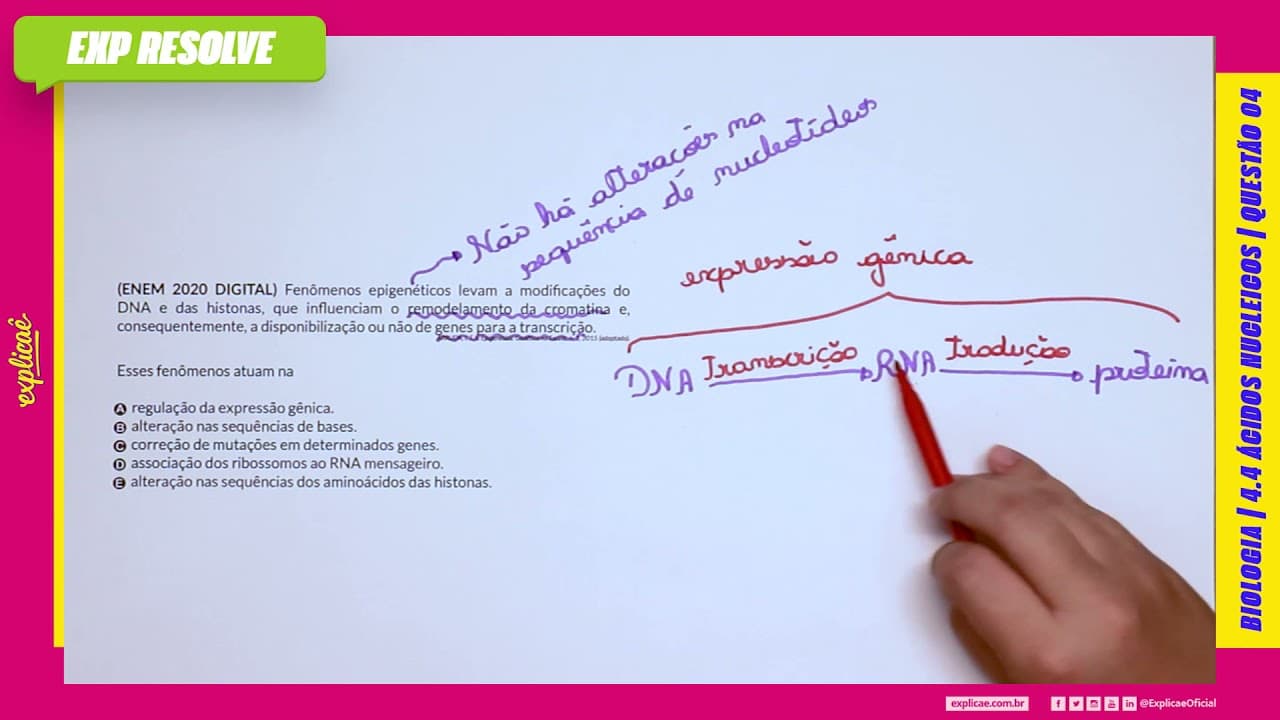 EXP RESOLVE
Não há alterações na
sequência de nucleotídeos
(ENEM 2020 DIGITAL) Fenômenos epigenéticos levam a modificações do
DNA e das histonas, que influenciam o remodelamento da cromatina e,
consequentemente, a disponibilização ou não de genes para a transcrição.
2015 (adaptado).
Esses fenômenos atuam na
A regulação da expressão gênica.
B alteração nas sequências de bases.
C correção de mutações em determinados genes.
D associação dos ribossomos ao RNA mensageiro.
E alteração nas sequências dos aminoácidos das histonas.
expressão gênica
DNA Transcrição RNA Tradução proteína
explicaê
BIOLOGIA | 4.4 ÁCIDOS NUCLEICOS | QUESTÃO 04
explicae.com.br
@ExplicaeOficial